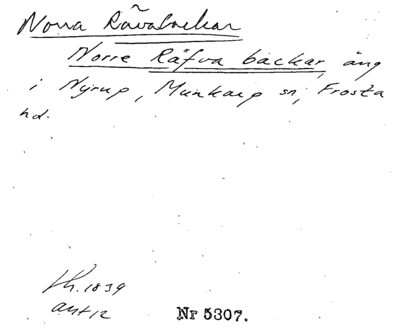 Norra Rävabackar
Norre Räfva backar, äng
i Nyrup, Munkarp sn, Frosta
hd.
Lh. 1839
akt 12
Nr 5307.